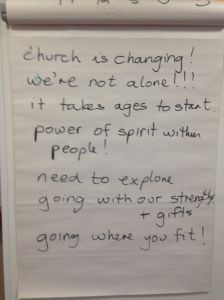 church is changing!
we're not alone!!!
it takes ages to start.
power of spirit within
people!
need to explore
going with our strengths
+ gifts
going where you fit!